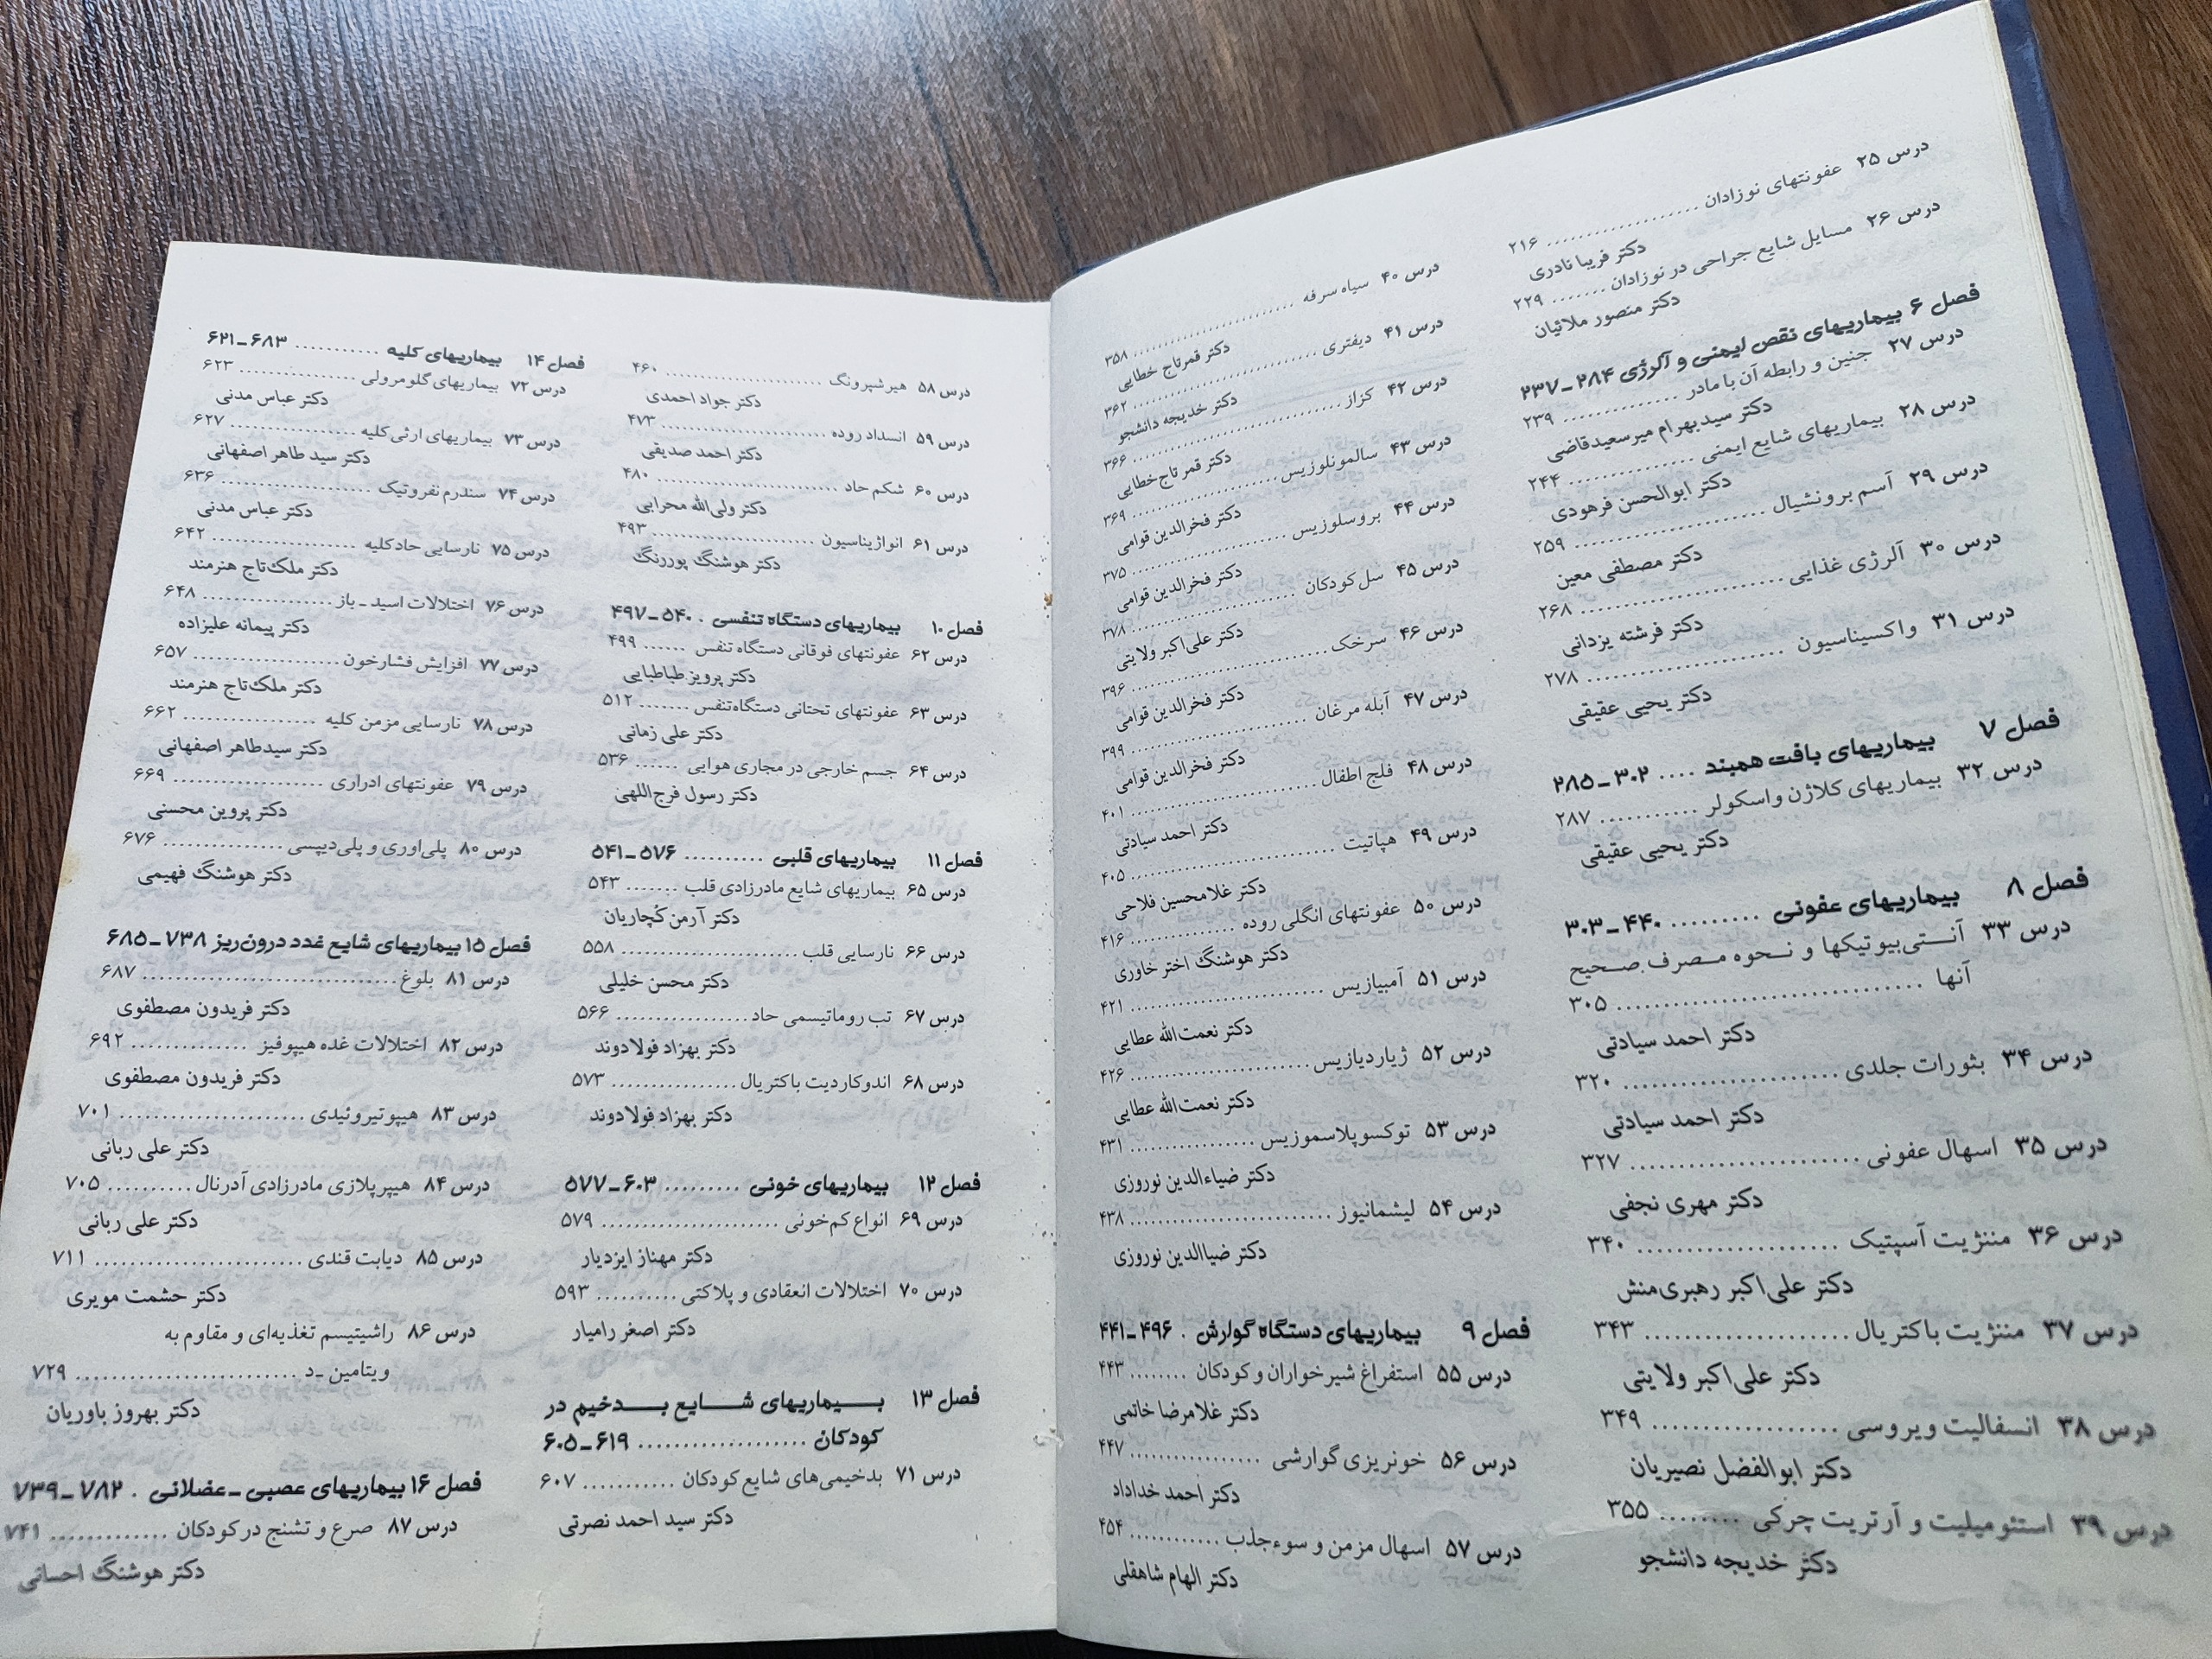 درس ۲۵ عفونتهای نوزادان .................. ۲۱۶
دکتر فریبا نادری
درس ۲۶ مسایل شایع جراحی در نوزادان ....... ۲۲۹
دکتر منصور ملائیان
فصل ۶ بیماریهای نقص ایمنی و آلرژی ۲۸۴-۲۳۷
درس ۲۷ جنین و رابطه آن با مادر ............... ۲۳۹
دکتر سید بهرام میرسعید قاضی
درس ۲۸ بیماریهای شایع ایمنی ................ ۲۴۴
دکتر ابوالحسن فرهودی
درس ۲۹ آسم برونشیال ........................ ۲۵۹
دکتر مصطفی معین
درس ۳۰ آلرژی غذایی ......................... ۲۶۸
دکتر فرشته یزدانی
درس ۳۱ واکسیناسیون ........................ ۲۷۸
دکتر یحیی عقیقی
فصل ۷ بیماریهای بافت همبند .... ۳۰۲-۲۸۵
درس ۳۲ بیماریهای کلاژن واسکولر ........... ۲۸۷
دکتر یحیی عقیقی
فصل ۸ بیماریهای عفونی ......... ۴۴۰-۳۰۳
درس ۳۳ آنتی‌بیوتیکها و نحوه مصرف صحیح
آنها ............................... ۳۰۵
دکتر احمد سیادتی
درس ۳۴ بثورات جلدی ...................... ۳۲۰
دکتر احمد سیادتی
درس ۳۵ اسهال عفونی ....................... ۳۲۷
دکتر مهری نجفی
درس ۳۶ مننژیت آسپتیک .................... ۳۴۰
دکتر علی‌اکبر رهبری‌منش
درس ۳۷ مننژیت باکتریال .................... ۳۴۳
دکتر علی‌اکبر ولایتی
درس ۳۸ انسفالیت ویروسی .................. ۳۴۹
دکتر ابوالفضل نصیریان
درس ۳۹ استئومیلیت و آرتریت چرکی ......... ۳۵۵
دکتر خدیجه دانشجو
درس ۴۰ سیاه سرفه ......................... ۳۵۸
دکتر قمرتاج خطایی
درس ۴۱ دیفتری ............................ ۳۶۲
دکتر خدیجه دانشجو
درس ۴۲ کزاز ............................... ۳۶۶
دکتر قمر تاج خطایی
درس ۴۳ سالمونلوزیس ...................... ۳۶۹
دکتر فخرالدین قوامی
درس ۴۴ بروسلوزیس ........................ ۳۷۵
دکتر فخرالدین قوامی
درس ۴۵ سل کودکان ........................ ۳۷۸
دکتر علی‌اکبر ولایتی
درس ۴۶ سرخک ............................ ۳۹۶
دکتر فخرالدین قوامی
درس ۴۷ آبله مرغان ......................... ۳۹۹
دکتر فخرالدین قوامی
درس ۴۸ فلج اطفال ......................... ۴۰۱
دکتر احمد سیادتی
درس ۴۹ هپاتیت ............................ ۴۰۵
دکتر غلامحسین فلاحی
درس ۵۰ عفونتهای انگلی روده ............... ۴۱۶
دکتر هوشنگ اختر خاوری
درس ۵۱ آمبیازیس .......................... ۴۲۱
دکتر نعمت‌الله عطایی
درس ۵۲ ژیاردیازیس ........................ ۴۲۶
دکتر نعمت‌الله عطایی
درس ۵۳ توکسوپلاسموزیس ................. ۴۳۱
دکتر ضیاءالدین نوروزی
درس ۵۴ لیشمانیوز .......................... ۴۳۸
دکتر ضیاالدین نوروزی
فصل ۹ بیماریهای دستگاه گوارش . ۴۹۶-۴۴۱
درس ۵۵ استفراغ شیرخواران و کودکان ........ ۴۴۳
دکتر غلامرضا خاتمی
درس ۵۶ خونریزی گوارشی .................. ۴۴۷
دکتر احمد خداداد
درس ۵۷ اسهال مزمن و سوءجذب ............ ۴۵۴
دکتر الهام شاهقلی
درس ۵۸ هیرشپرونگ ....................... ۴۶۰
دکتر جواد احمدی
درس ۵۹ انسداد روده ....................... ۴۷۳
دکتر احمد صدیقی
درس ۶۰ شکم حاد .......................... ۴۸۰
دکتر ولی‌الله محرابی
درس ۶۱ انواژیناسیون ....................... ۴۹۳
دکتر هوشنگ پوررنگ
فصل ۱۰ بیماریهای دستگاه تنفسی . ۵۴۰-۴۹۷
درس ۶۲ عفونتهای فوقانی دستگاه تنفس ...... ۴۹۹
دکتر پرویز طباطبایی
درس ۶۳ عفونتهای تحتانی دستگاه تنفس ....... ۵۱۲
دکتر علی زمانی
درس ۶۴ جسم خارجی در مجاری هوایی ...... ۵۳۶
دکتر رسول فرج‌اللهی
فصل ۱۱ بیماریهای قلبی .......... ۵۷۶-۵۴۱
درس ۶۵ بیماریهای شایع مادرزادی قلب ....... ۵۴۳
دکتر آرمن کُچاریان
درس ۶۶ نارسایی قلب ....................... ۵۵۸
دکتر محسن خلیلی
درس ۶۷ تب روماتیسمی حاد ................. ۵۶۶
دکتر بهزاد فولادوند
درس ۶۸ اندوکاردیت باکتریال ................ ۵۷۳
دکتر بهزاد فولادوند
فصل ۱۲ بیماریهای خونی ......... ۶۰۳-۵۷۷
درس ۶۹ انواع کم‌خونی ....................... ۵۷۹
دکتر مهناز ایزدیار
درس ۷۰ اختلالات انعقادی و پلاکتی .......... ۵۹۳
دکتر اصغر رامیار
فصل ۱۳ بیماریهای شایع بدخیم در
کودکان .................... ۶۱۹-۶۰۵
درس ۷۱ بدخیمی‌های شایع کودکان ........... ۶۰۷
دکتر سید احمد نصرتی
فصل ۱۴ بیماریهای کلیه ........... ۶۸۳-۶۲۱
درس ۷۲ بیماریهای گلومرولی ................ ۶۲۳
دکتر عباس مدنی
درس ۷۳ بیماریهای ارثی کلیه ................ ۶۲۷
دکتر سید طاهر اصفهانی
درس ۷۴ سندرم نفروتیک .................... ۶۳۶
دکتر عباس مدنی
درس ۷۵ نارسایی حاد کلیه ................... ۶۴۲
دکتر ملک‌تاج هنرمند
درس ۷۶ اختلالات اسید - باز ................. ۶۴۸
دکتر پیمانه علیزاده
درس ۷۷ افزایش فشارخون .................... ۶۵۷
دکتر ملک‌تاج هنرمند
درس ۷۸ نارسایی مزمن کلیه ................. ۶۶۲
دکتر سیدطاهر اصفهانی
درس ۷۹ عفونتهای ادراری ................... ۶۶۹
دکتر پروین محسنی
درس ۸۰ پلی‌اوری و پلی‌دیپسی ............... ۶۷۶
دکتر هوشنگ فهیمی
فصل ۱۵ بیماریهای شایع غدد درون‌ریز ۷۳۸-۶۸۵
درس ۸۱ بلوغ ................................ ۶۸۷
دکتر فریدون مصطفوی
درس ۸۲ اختلالات غده هیپوفیز .............. ۶۹۲
دکتر فریدون مصطفوی
درس ۸۳ هیپوتیروئیدی ....................... ۷۰۱
دکتر علی ربانی
درس ۸۴ هیپرپلازی مادرزادی آدرنال .......... ۷۰۵
دکتر علی ربانی
درس ۸۵ دیابت قندی ......................... ۷۱۱
دکتر حشمت مویری
درس ۸۶ راشیتیسم تغذیه‌ای و مقاوم به
ویتامین -د ........................... ۷۲۹
دکتر بهروز باوریان
فصل ۱۶ بیماریهای عصبی - عضلانی . ۷۸۲-۷۳۹
درس ۸۷ صرع و تشنج در کودکان ............. ۷۴۱
دکتر هوشنگ احسانی